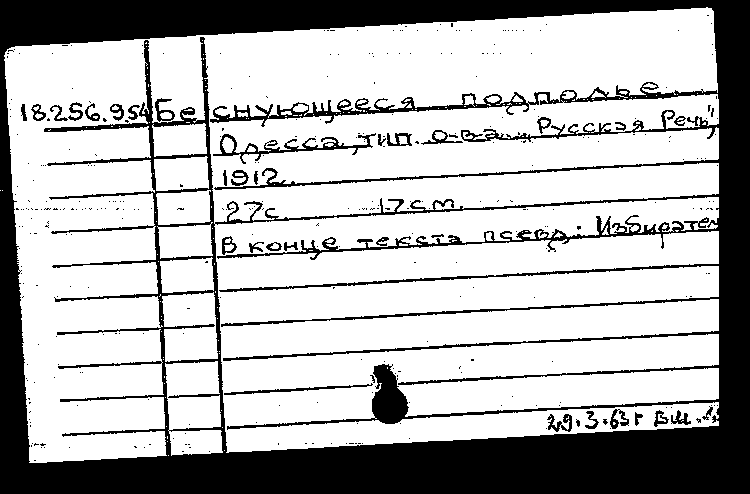 18.256.954 Беснующееся подполье.
Одесса, тип. о-ва „Русская Речь",
1912.
27с. 17см.
В конце текста псевд.: Избирател
29.3.63г